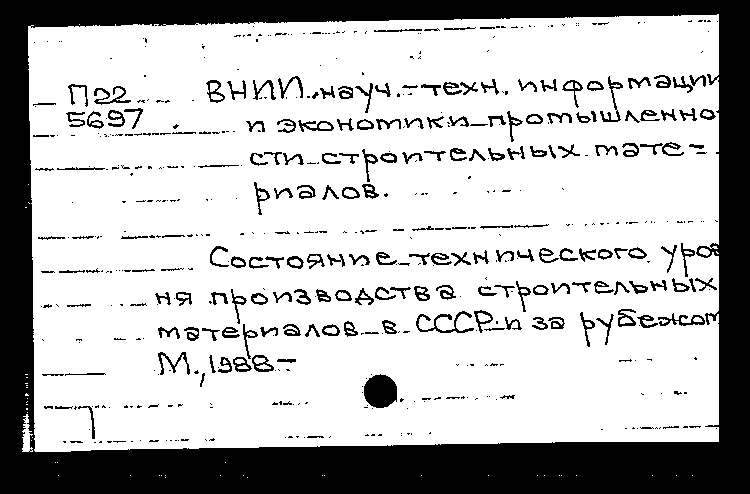 П22 ВНИИ науч.-техн. информации
5697 и экономики промышленно-
сти строительных мате-
риалов.
Состояние технического уров
ня производства строительных
материалов в СССР и за рубежом
М., 1988-